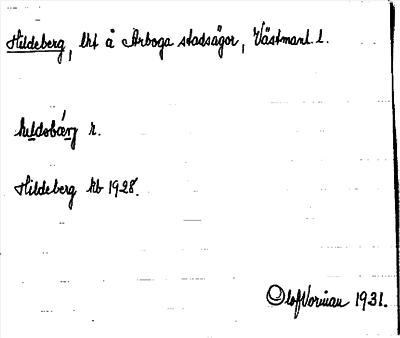 Hildeberg, lht å Arboga stadsägor, Västmanl. l.
hildəbærj r.
Hildeberg kb 1928.
Olof Norman 1931.